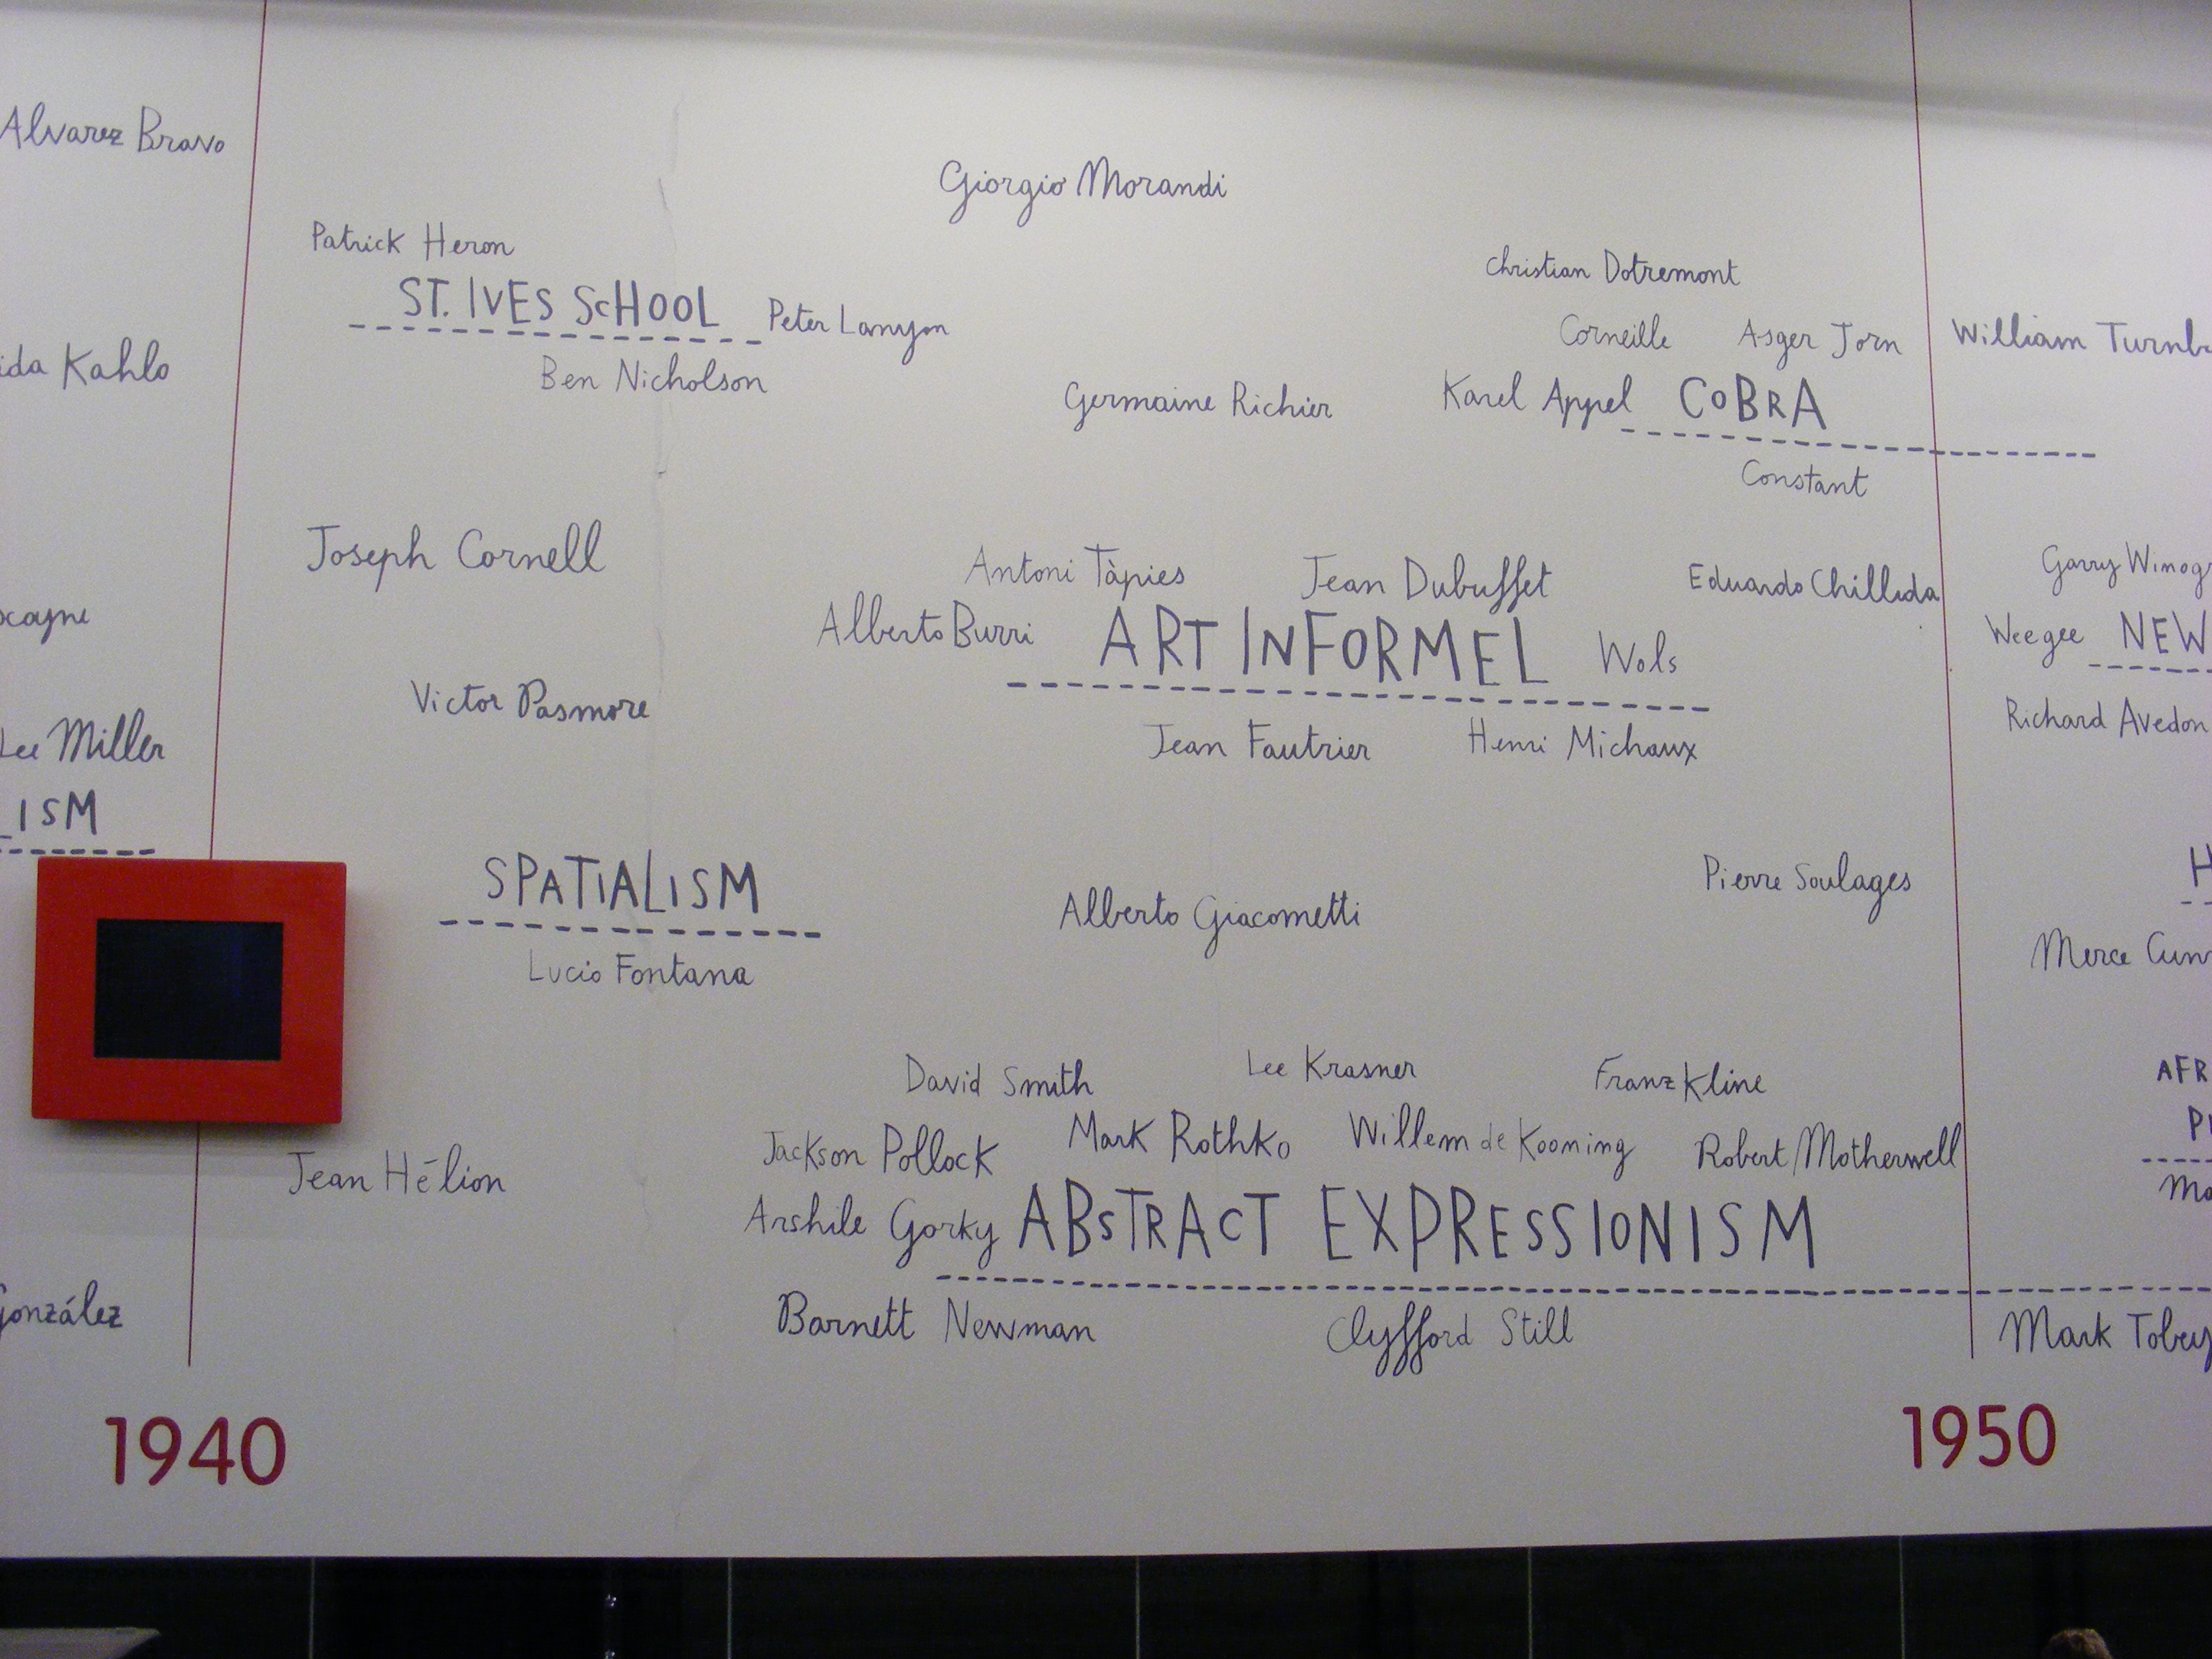 Alvarez Bravo
Giorgio Morandi
Patrick Heron
ST. IVES SCHOOL
Peter Lanyon
Ben Nicholson
Christian Dotremont
Corneille
Asger Jorn
William Turnb
ida Kahlo
Germaine Richier
Karel Appel
COBRA
Constant
Joseph Cornell
Antoni Tàpies
Jean Dubuffet
Eduardo Chillida
Garry Winogr
Alberto Burri
ART INFORMEL
Wols
Weegee
NEW
Jean Fautrier
Henri Michaux
Richard Avedon
Victor Pasmore
Lee Miller
LISM
SPATIALISM
Lucio Fontana
Alberto Giacometti
Pierre Soulages
H
Merce Cunn
David Smith
Lee Krasner
Franz Kline
AFR
Jackson Pollock
Mark Rothko
Willem de Kooning
Robert Motherwell
Jean Hélion
Arshile Gorky
ABSTRACT EXPRESSIONISM
Barnett Newman
Clyfford Still
González
Mark Tobey
1940
1950